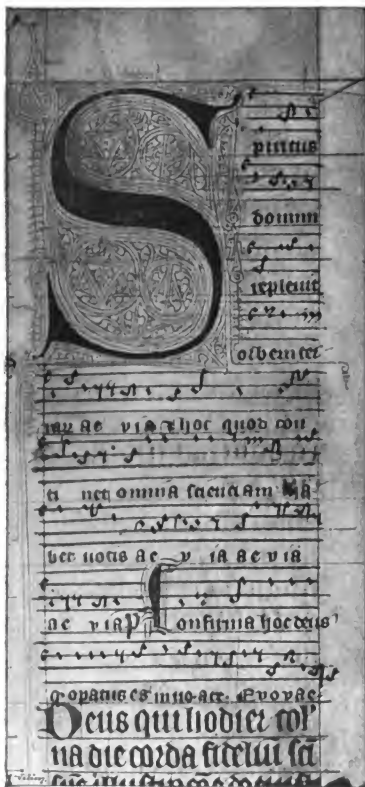 S
piritus
domini
repleuit
orbem ter
rar ae via & hoc quod con
ti net omnia scienciam ha
bet uocis ae v ia ae via
ae via Ps onfirma hoc deus
q opatus es in no Evovae
Deus qui hodier
na die corda fideliũ sci